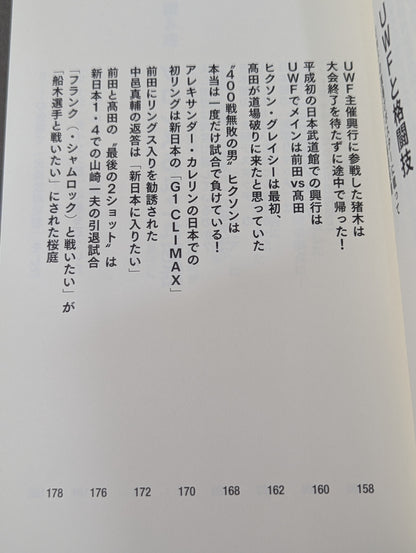 UWFと格闘技
UWF主催興行に参戦した猪木は
大会終了を待たずに途中で帰った！
158
平成初の日本武道館での興行は
UWFでメインは前田vs髙田
160
ヒクソン・グレイシーは最初、
髙田が道場破りに来たと思っていた
162
“400戦無敗の男”ヒクソンは
本当は一度だけ試合で負けている！
168
アレキサンダー・カレリンの日本での
初リングは新日本の「G1 CLIMAX」
170
前田にリングス入りを勧誘された
中邑真輔の返答は「新日本に入りたい」
172
前田と髙田の“最後の2ショット”は
新日本1・4での山崎一夫の引退試合
176
「フランク（・シャムロック）と戦いたい」が
「船木選手と戦いたい」にされた桜庭
178